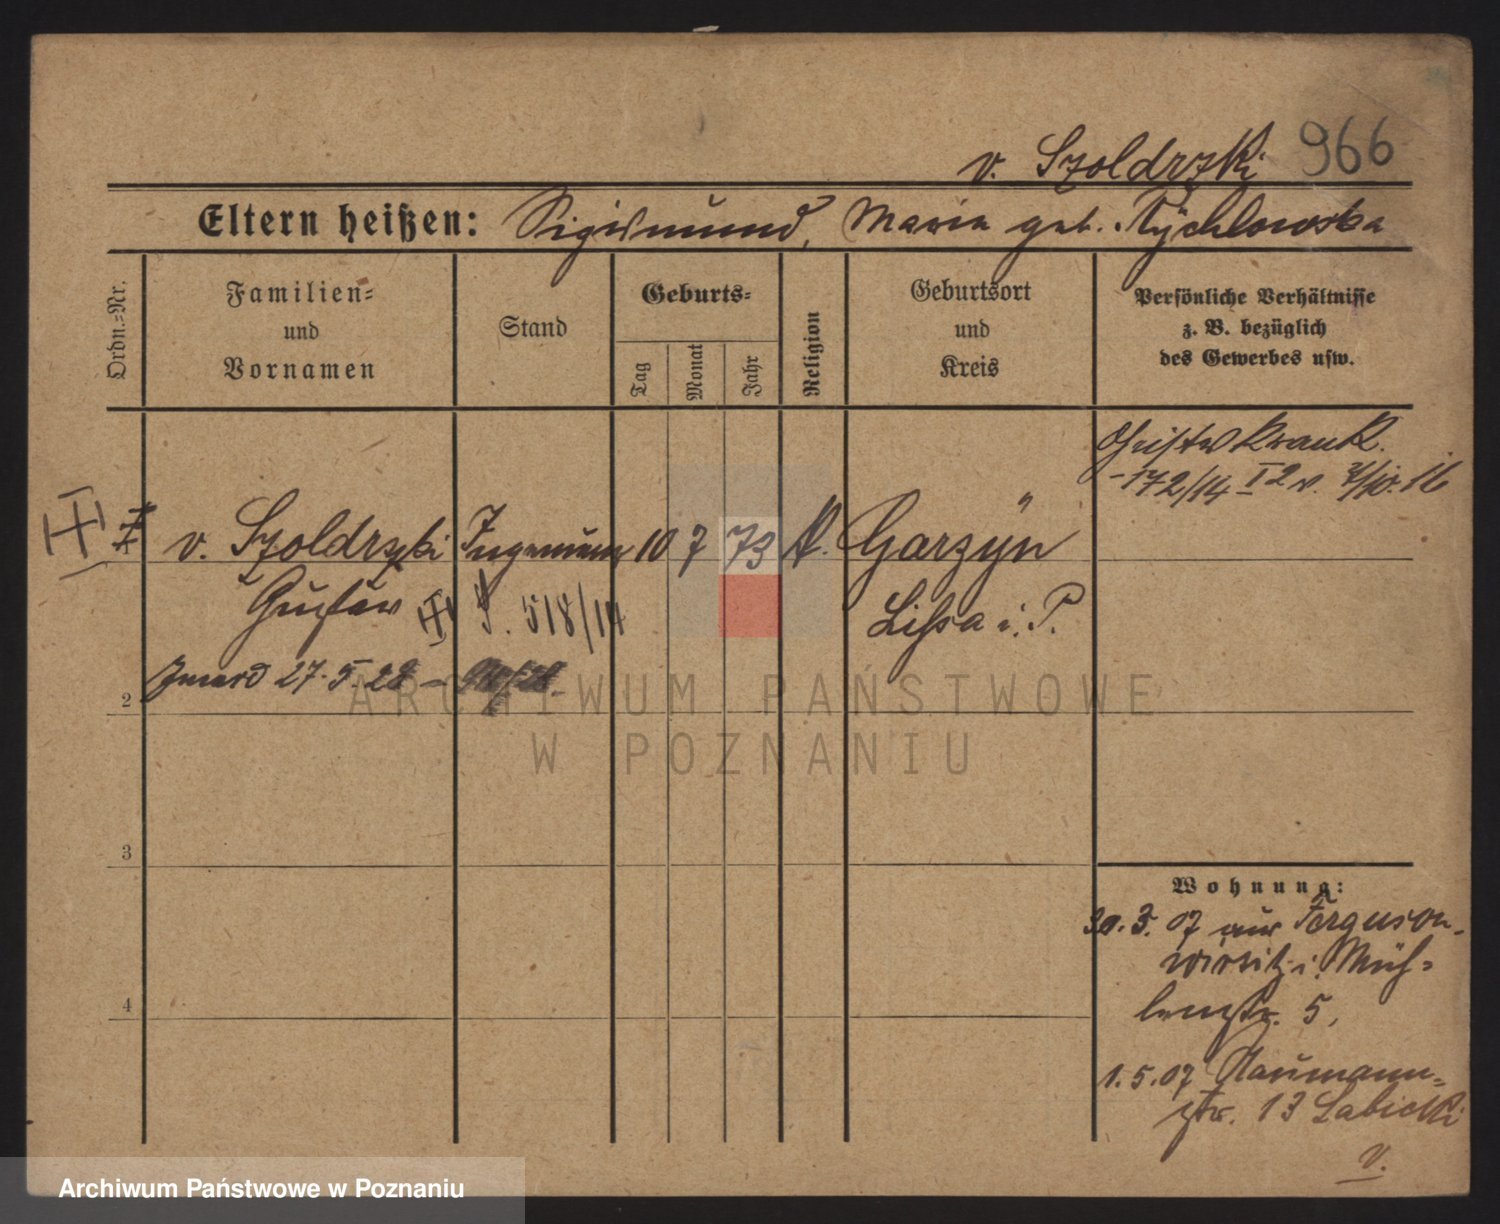 v. Szoldrzki 966
Eltern heißen: Sigismund, Maria geb. Rychlowska
Ordn.-Nr.
Familien-
und
Vornamen
Stand
Geburts-
Tag
Monat
Jahr
Religion
Geburtsort
und
Kreis
Persönliche Verhältnisse
z. B. bezüglich
des Gewerbes usw.
Geisteskrank.
172/14 I 2 v.
v. Szoldrzki
Gustav
10 7 73
Garzÿn
Lissa i. P.
518/14
27. 5. 22
2
3
4
Wohnung:
30. 3. 07 aus Ferguson-
i. Müh-
lenstr. 5,
1. 5. 07 Naumann-
str. 13 Sabietki
v.
ARCHIWUM PAŃSTWOWE
W POZNANIU
Archiwum Państwowe w Poznaniu